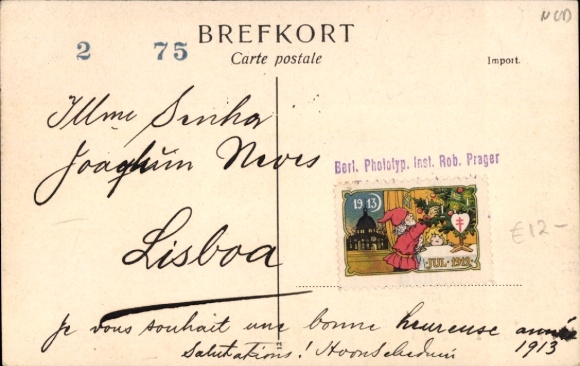 NUD
BREFKORT
2 75
Carte postale
Import.
Illmo Senhor
Joaquim Neves
Berl. Phototyp. Inst. Rob. Prager
1913
JUL 1913
Lisboa
£12-
Je vous souhait une bonne heureuse année
Salutations! 1913